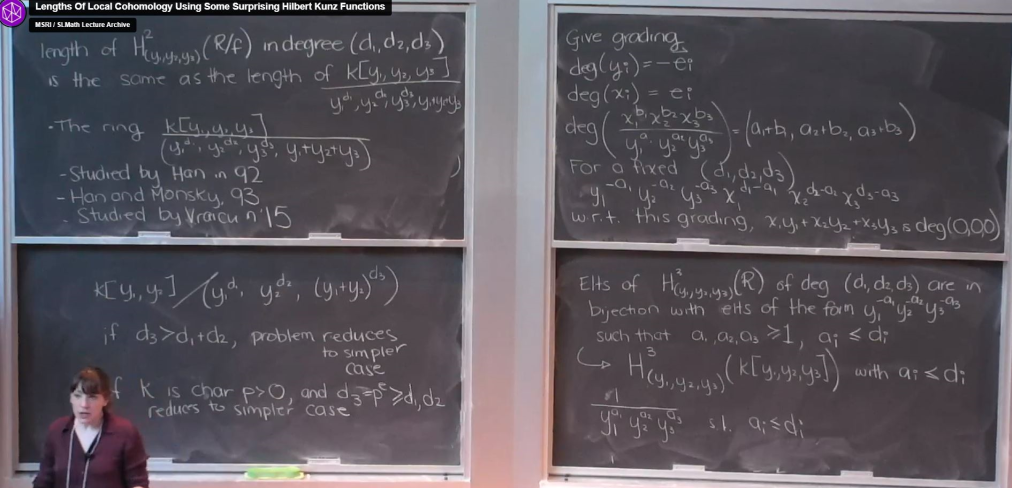 Lengths Of Local Cohomology Using Some Surprising Hilbert Kunz Functions
MSRI / SLMath Lecture Archive
length of H²_(y₁,y₂,y₃)(R/f) in degree (d₁,d₂,d₃)
is the same as the length of k[y₁,y₂,y₃]
y₁^d₁, y₂^d₂, y₃^d₃, y₁+y₂+y₃
·The ring k[y₁,y₂,y₃]
(y₁^d₁, y₂^d₂, y₃^d₃, y₁+y₂+y₃)
- Studied by Han in 92
- Han and Monsky, 93
- Studied by Vraciu in '15
k[y₁,y₂]/(y₁^d₁, y₂^d₂, (y₁+y₂)^d₃)
if d₃>d₁+d₂, problem reduces
to simpler
case
f K is char p>0, and d₃=p^e≥d₁,d₂
reduces to simpler case
Give grading
deg(yᵢ)=-eᵢ
deg(xᵢ) = eᵢ
deg(x₁^b₁ x₂^b₂ x₃^b₃ / y₁^a₁ y₂^a₂ y₃^a₃) = (a₁+b₁, a₂+b₂, a₃+b₃)
For a fixed (d₁,d₂,d₃)
y₁^-a₁ y₂^-a₂ y₃^-a₃ x₁^d₁-a₁ x₂^d₂-a₂ x₃^d₃-a₃
w.r.t. this grading, x₁y₁+x₂y₂+x₃y₃ is deg(0,0,0)
Elts of H³_(y₁,y₂,y₃)(R) of deg (d₁,d₂,d₃) are in
bijection with elts of the form y₁^-a₁ y₂^-a₂ y₃^-a₃
such that a₁,a₂,a₃ ≥1, aᵢ ≤ dᵢ
↪ H³_(y₁,y₂,y₃)(k[y₁,y₂,y₃]) with aᵢ ≤ dᵢ
1
y₁^a₁ y₂^a₂ y₃^a₃ s.t. aᵢ ≤ dᵢ